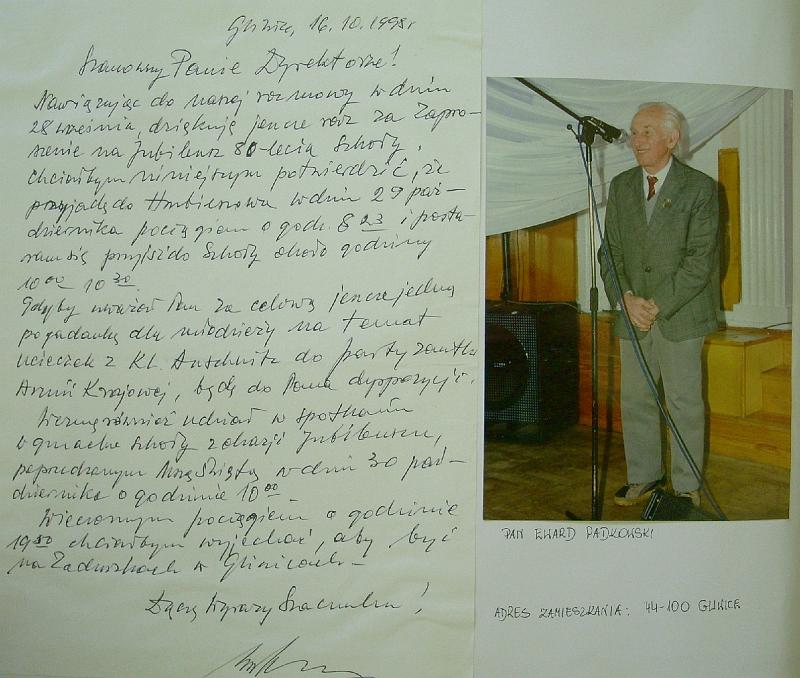 Gliwice, 16.10.1998r
Szanowny Panie Dyrektorze!
Nawiązując do naszej rozmowy w dniu
28 września, dziękuję jeszcze raz za Zapro-
szenie na Jubileusz 80-lecia Szkoły.
Chciałbym niniejszym potwierdzić, że
przyjadę do Hrubieszowa w dniu 29 paź-
dziernika pociągiem o godz. 8 23 i posta-
ram się przyjść do Szkoły około godziny
10 00 10 30.
Gdyby uważał Pan za celową jeszcze jedną
pogadankę dla młodzieży na temat
ucieczek z KL. Auschwitz do partyzantki
Armii Krajowej, będę do Pana dyspozycji.
Wezmę również udział w spotkaniu
w gmachu szkoły z okazji Jubileuszu,
poprzedzonym Mszą Świętą w dniu 30 paź-
dziernika o godzinie 10 00 -
Wieczornym pociągiem o godzinie
19 50 chciałbym wyjechać, aby być
na Zaduszkach w Gliwicach -
Łączę Wyrazy Szacunku!
PAN EWARD PADKOWSKI
ADRES ZAMIESZKANIA: 44-100 GLIWICE